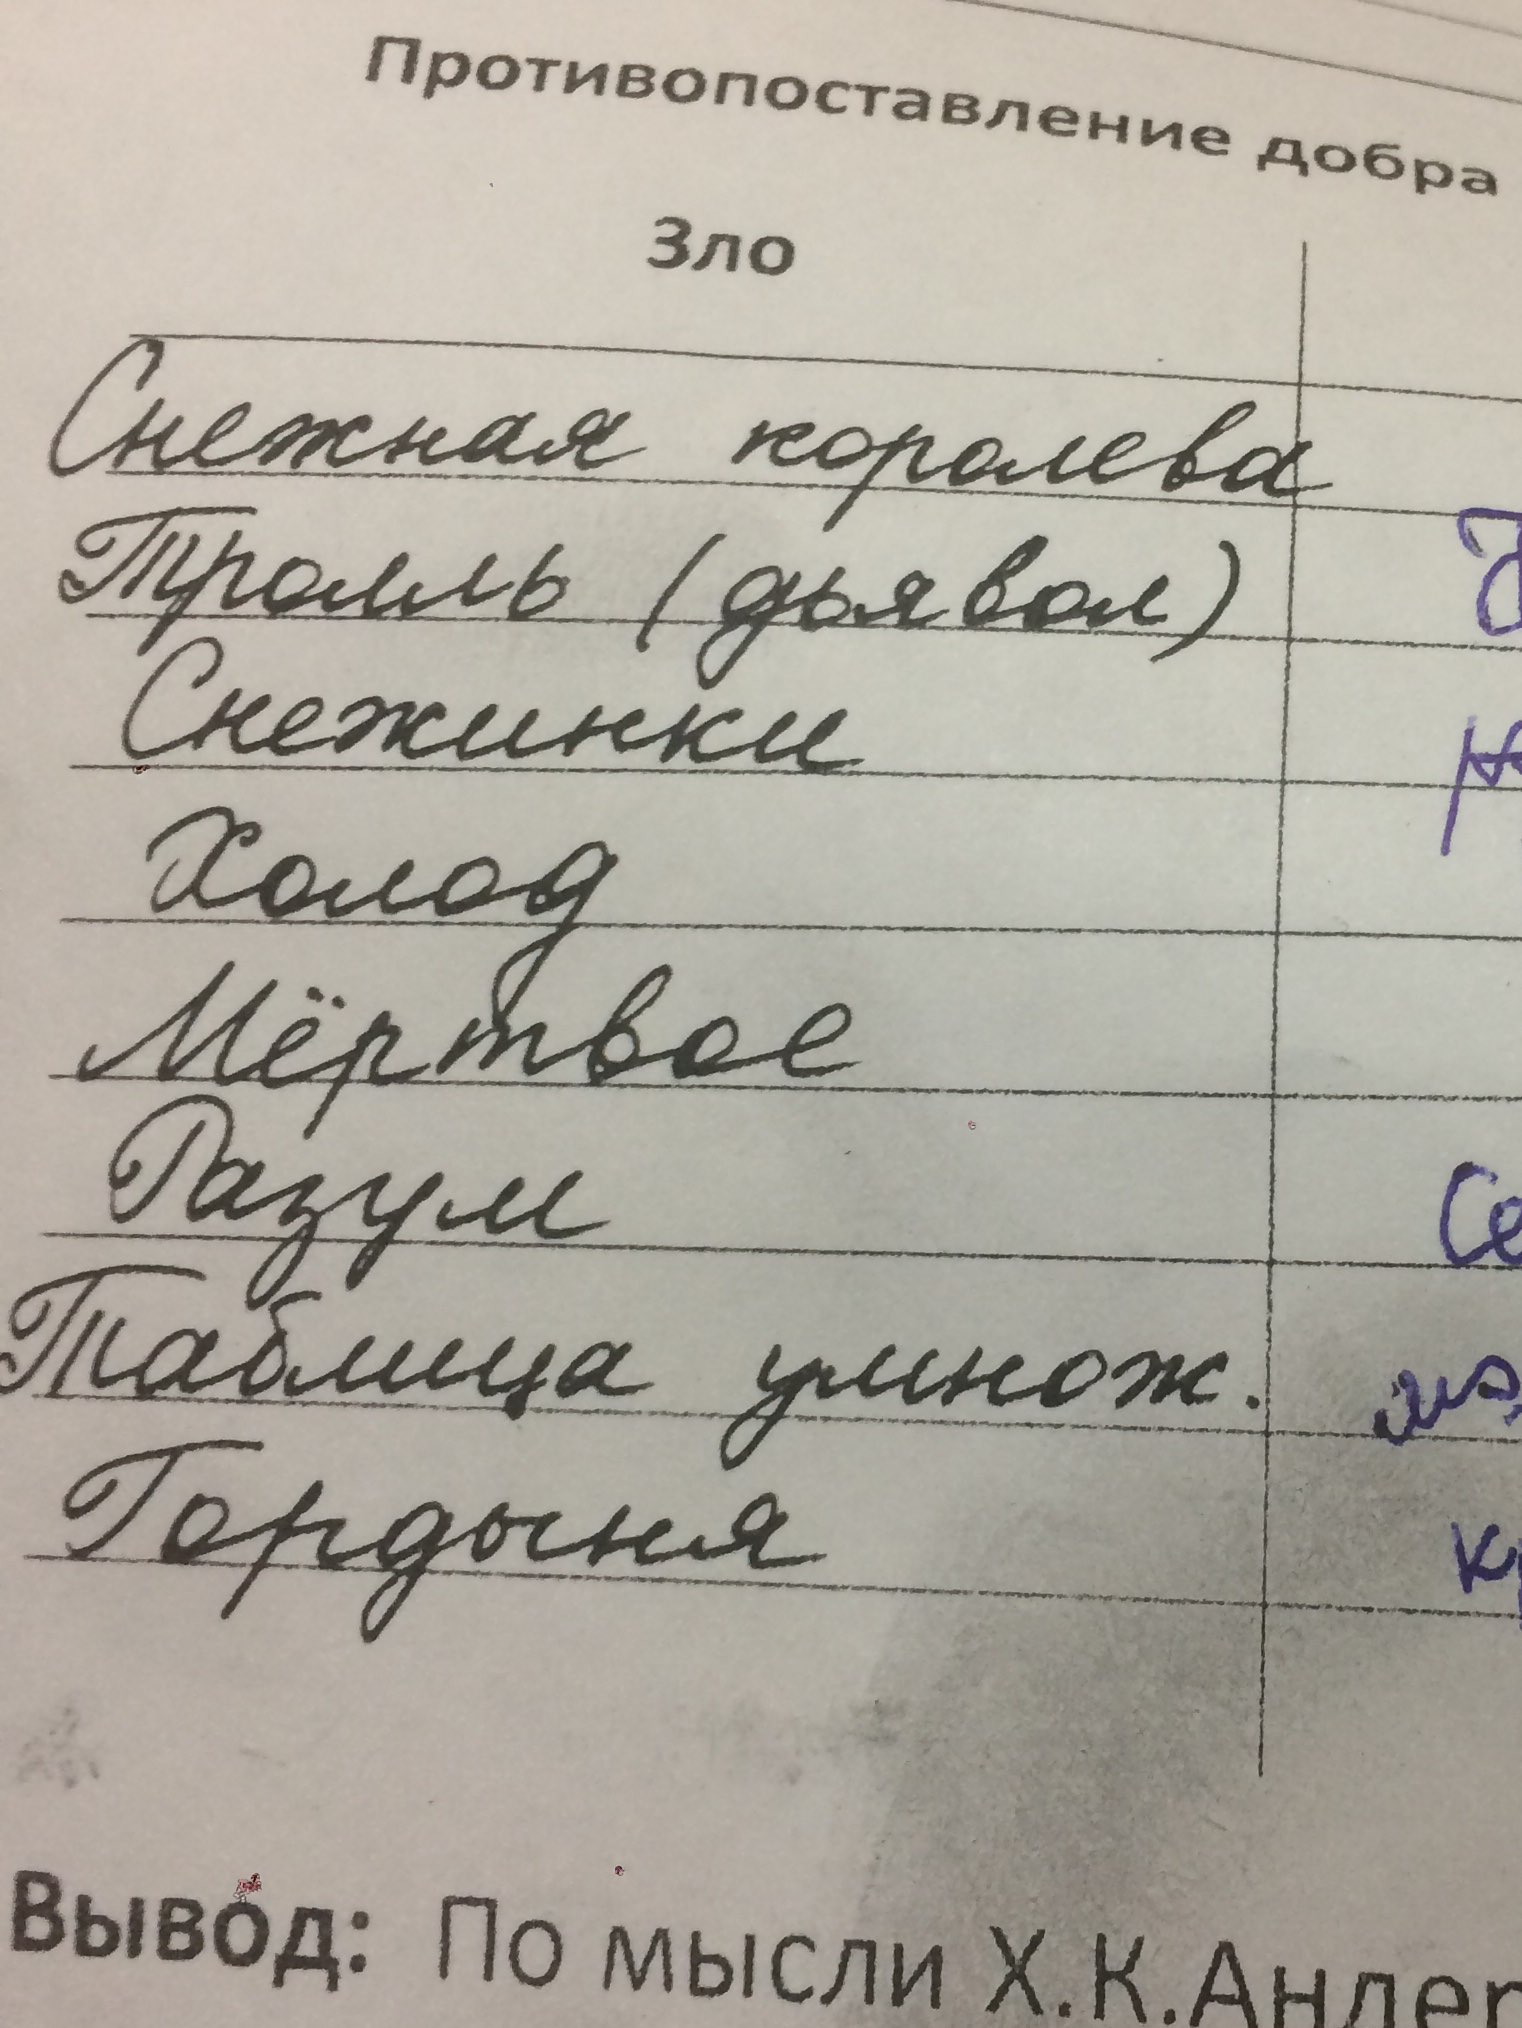 Противопоставление добра
Зло
Снежная королева
Тролль (дьявол)
Снежинки
Холод
Мёртвое
Разум
Таблица умнож.
Гордыня
Вывод: По мысли Х.К.Андер